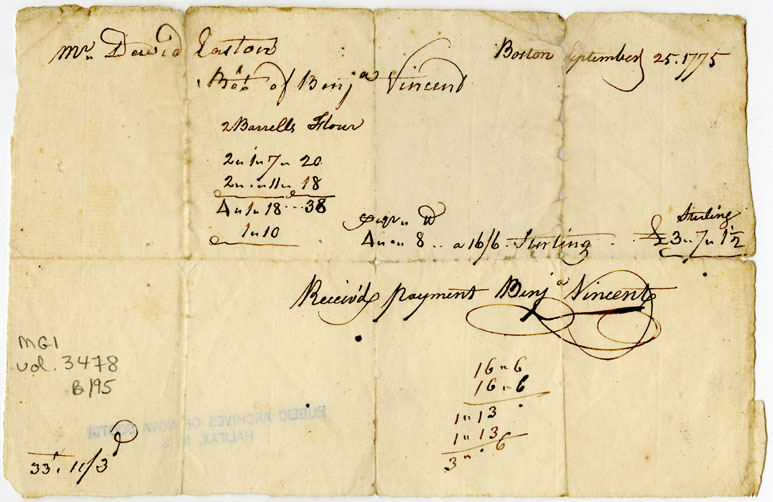 Mr. David Easton
Boston September 25. 1775
Bot of Benja Vincent
2 Barrells Flour
2 " 1 " 7 " 20
2 " .. " 11 " 18
4 " 1 " 18 .. 38
1 " 10
4 " 0 " 8 .. a 16/6 Sterling
Sterling
£3 " 7 " 1½
Receiv'd payment Benja Vincent
16 " 6
16 " 6
1 " 13
1 " 13
3 " 6
MG1
vol. 3478
B195
PUBLIC ARCHIVES OF NOVA SCOTIA
HALIFAX, N. S.
33. 11/3d